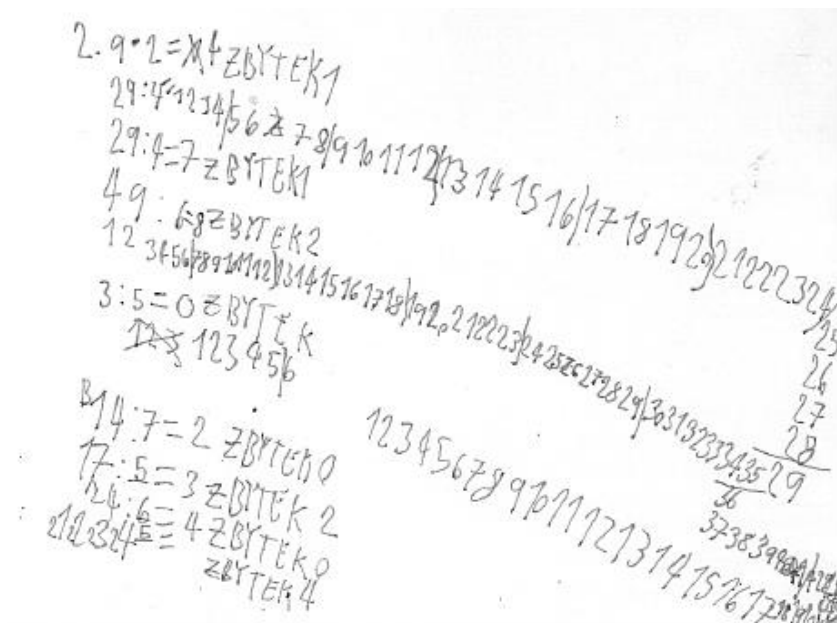 2. 9·2=4 ZBYTEK1
29:4 1234/56 78/9 10 11 12/13 14 15 16/17 18 19 20/21 22 23 24/
25
26
27
28
29
29:4=7 ZBYTEK1
49:6=8 ZBYTEK2
12 3456/789101112/131415161718/1920212223/242526272829/303132333435
36
373839
3:5=0 ZBYTEK
123 123456
B14:7=2 ZBYTEK0
17:5=3 ZBYTEK 2
24:6=4 ZBYTEK0
ZBYTEK4
1234567891011121314151617